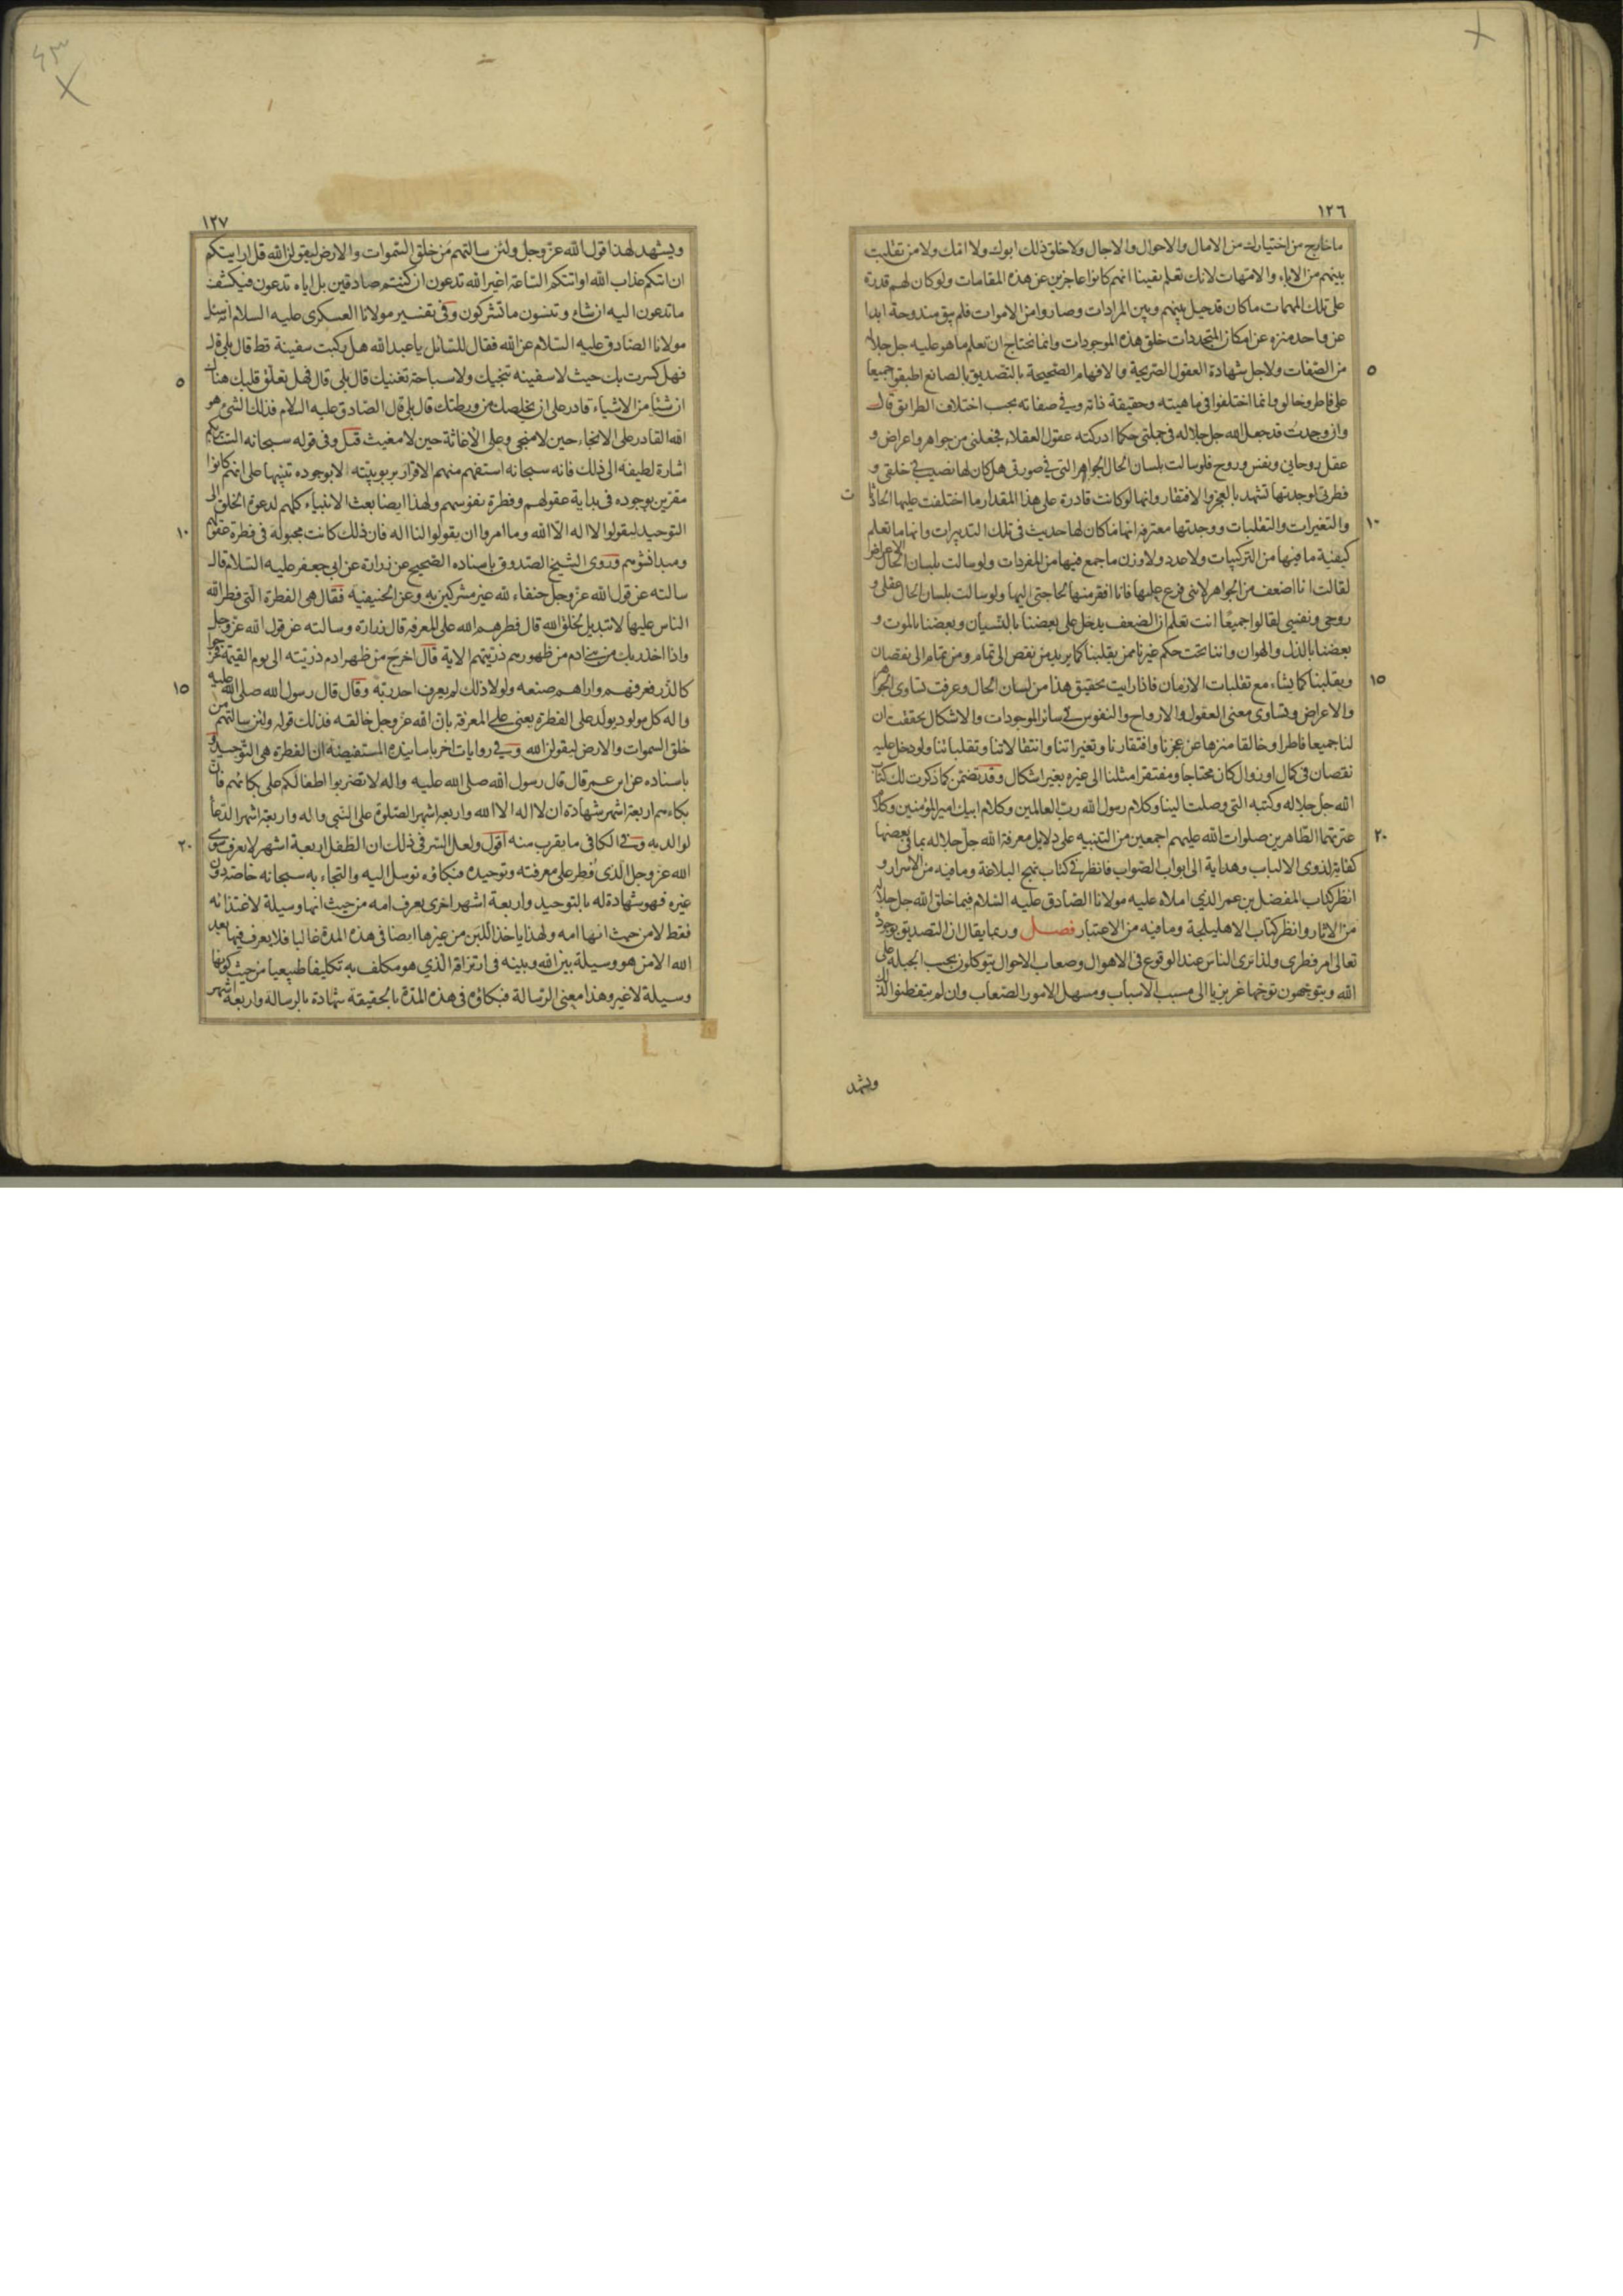 ١٢٦
ما خارج من اختيارك من الامال والاحوال والاجال ولا خلق ذلك ابوك ولا امك ولا من تقلبت
بينهم من الاباء والامهات لانك تعلم يقينا انهم كانوا عاجزين عن هذه المقامات ولو كان لهم قدرة
على تلك المهمات ما كان قد حيل بينهم وبين المرادات وصاروا من الاموات فلم يبق مندوحة ابدا
عن واحد منزه عن امكان المتجددات خلق هذه الموجودات وانما تحتاج ان تعلم ما هو عليه جل جلاله
٥
من الصفات ولاجل شهادة العقول الصريحة والافهام الصحيحة بالتصديق بالصانع اطبقوا جميعا
على فاطر وخالق وانما اختلفوا في ماهيته وحقيقة ذاته وفي صفاته بحسب اختلاف الطرائق قال
واني وجدت قد جعل الله جل جلاله في جملتي حكما ادركته عقول العقلاء فجعلني من جواهر واعراض و
عقل روحاني ونفس وروح فلو سالت بلسان الحال الجواهر التي في صورتي هل كان لها نصيب في خلقي و
فطرتي لوجدتها تشهد بالعجز والافتقار وانها لو كانت قادرة على هذا المقدار ما اختلفت عليها الحادثا
ت
١٠
والتغيرات والتقلبات ووجدتها معترفة انها ما كان لها حديث في تلك التدبيرات وانها ما تعلم
كيفية ما فيها من التركيبات ولا عدد ولا وزن ما جمع فيها من المفردات ولو سالت بلسان الحال الاعراض
لقالت انا اضعف من الجواهر لانني فرع عليها فانا افقر منها لحاجتي اليها ولو سالت بلسان الحال عقلي و
روحي ونفسي لقالوا جميعا انت تعلم ان الضعف يدخل على بعضنا بالنسيان وبعضنا بالموت و
بعضنا بالذل والهوان واننا تحت حكم غيرنا ممن يقلبنا كما يريد من نقص الى تمام ومن تمام الى نقصان
١٥
ويقلبنا كما يشاء مع تقلبات الازمان فاذا رايت تحقيق هذا من لسان الحال وعرفت تساوى الجواهر
والاعراض وتساوى معنى العقول والارواح والنفوس في سائر الموجودات والاشكال تحققت ان
لنا جميعا فاطرا وخالقا منزها عن عجزنا وافتقارنا وتغيراتنا وانتقالاتنا وتقلباتنا ولو دخل عليه
نقصان في كمال او زوال كان محتاجا ومفتقرا مثلنا الى غيره بغير اشكال وقد تضمن كما ذكرت لك كتاب
الله جل جلاله وكتبه التي وصلت الينا وكلام رسول الله رب العالمين وكلام ابيك امير المؤمنين وكلام
٢٠
عترتهما الطاهرين صلوات الله عليهم اجمعين من التنبيه على دلايل معرفة الله جل جلاله بما في بعضها
كفاية لذوى الالباب وهداية الى ابواب الصواب فانظر في كتاب نهج البلاغة وما فيه من الاسرار و
انظر كتاب المفضل بن عمر الذي املاه عليه مولانا الصادق عليه السلام فيما خلق الله جل جلاله
من الاثار وانظر كتاب الاهليلجة وما فيه من الاعتبار فصل وربما يقال ان التصديق بوجوده
تعالى امر فطرى ولذا ترى الناس عند الوقوع في الاهوال وصعاب الاحوال يتوكلون بحسب الجبلة على
الله ويتوجهون توجها غريزيا الى مسبب الاسباب ومسهل الامور الصعاب وان لم يتفطنوا لذلك
ويشهد
١٢٧
ويشهد لهذا قول الله عز وجل ولئن سالتهم من خلق السموات والارض ليقولن الله قل ارايتكم
ان اتيكم عذاب الله او اتتكم الساعة اغير الله تدعون ان كنتم صادقين بل اياه تدعون فيكشف
ما تدعون اليه ان شاء وتنسون ما تشركون وفي تفسير مولانا العسكرى عليه السلام انه سئل
مولانا الصادق عليه السلام عن الله فقال للسائل يا عبد الله هل ركبت سفينة قط قال بلى قال
٥
فهل كسرت بك حيث لا سفينه تنجيك ولا سباحة تغنيك قال بلى قال فهل تعلق قلبك هناك
ان شيئا من الاشياء قادر على ان يخلصك من ورطتك قال بلى قال الصادق عليه السلام فذلك الشئ هو
الله القادر على الانجاء حين لا منجي وعلى الاغاثة حين لا مغيث قيل وفي قوله سبحانه الست بربكم
اشارة لطيفة الى ذلك فانه سبحانه استفهم منهم الاقرار بربوبيته لا بوجوده تنبيها على انهم كانوا
مقرين بوجوده في بداية عقولهم وفطرة نفوسهم ولهذا ايضا بعث الانبياء كلهم لدعوة الخلق الى
١٠
التوحيد ليقولوا لا اله الا الله وما امروا ان يقولوا لنا اله فان ذلك كانت مجبولة في فطرة عقولهم
ومبدا نشوهم وروى الشيخ الصدوق باسناده الصحيح عن زرارة عن ابي جعفر عليه السلام قال
سالته عن قول الله عز وجل حنفاء لله غير مشركين به وعن الحنيفية فقال هى الفطرة التى فطر الله
الناس عليها لا تبديل لخلق الله قال فطرهم الله على المعرفة قال زرارة وسالته عن قول الله عز وجل
واذا اخذ ربك من بني ادم من ظهورهم ذريتهم الاية قال اخرج من ظهر ادم ذريته الى يوم القيمة فخرجوا
١٥
كالذر فعرفهم واراهم صنعه ولولا ذلك لم يعرف احد ربه وقال قال رسول الله صلى الله عليه
واله كل مولود يولد على الفطرة يعنى على المعرفة بان الله عز وجل خالقه فذلك قوله ولئن سالتهم من
خلق السموات والارض ليقولن الله وفي روايات اخر باسانيده المستفيضة ان الفطرة هى التوحيد و
باسناده عن ابن عمر قال قال رسول الله صلى الله عليه واله لا تضربوا اطفالكم على بكائهم فان
بكاءهم اربعة اشهر شهادة ان لا اله الا الله واربعة اشهر الصلوة على النبي واله واربعة اشهر الدعاء
٢٠
لوالديه وفي الكافي ما يقرب منه اقول ولعل السر في ذلك ان الطفل اربعة اشهر لا يعرف سوى
الله عز وجل الذى فطر على معرفته وتوحيده فبكاؤه توسل اليه والتجاء به سبحانه خاصة دون
غيره فهو شهادة له بالتوحيد واربعة اشهر اخرى يعرف امه من حيث انها وسيلة لاغتذائه
فقط لا من حيث انها امه ولهذا ياخذ اللبن من غيرها ايضا في هذه المدة غالبا فلا يعرف فيها بعد
الله الا من هو وسيلة بين الله وبينه في ارتزاقه الذي هو مكلف به تكليفا طبيعيا من حيث كونها
وسيلة لا غير وهذا معنى الرسالة فبكاؤه في هذه المدة بالحقيقة شهادة بالرسالة واربعة اشهر